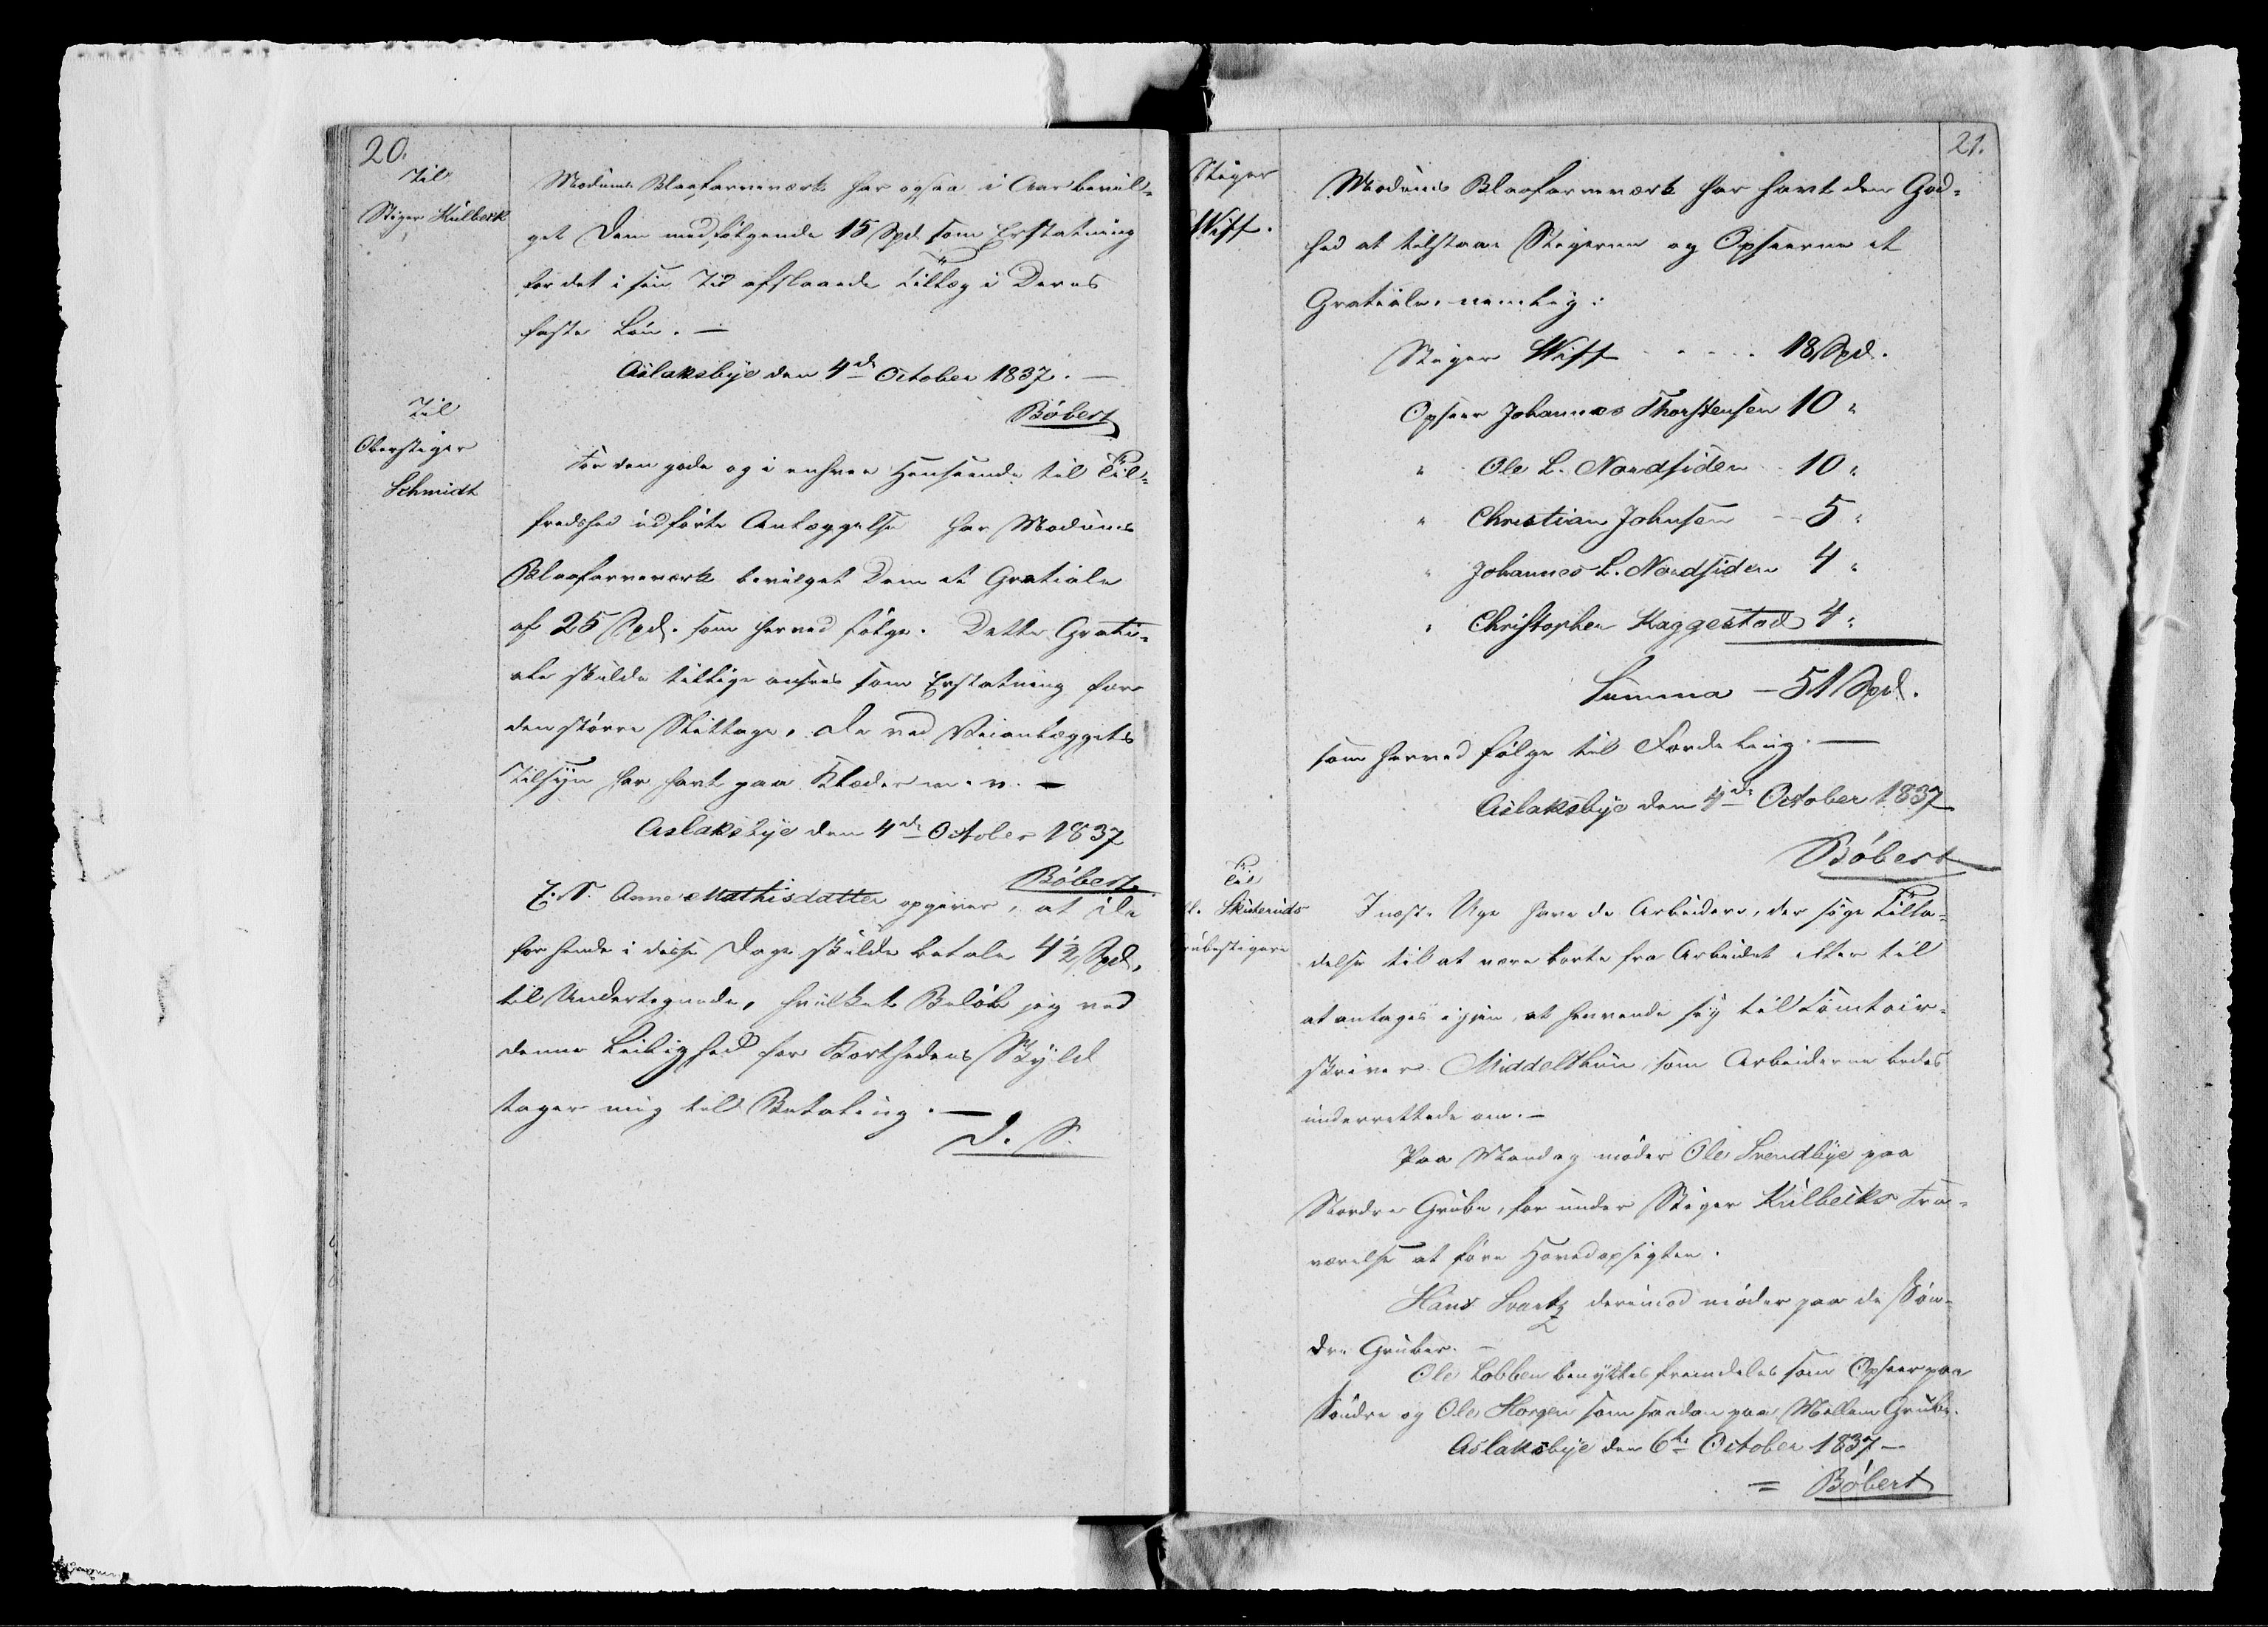 20.
Til
Stiger Kulbeck
Modums Blaafarveværk har ogsaa i Aar bevil-
get Dem medfølgende 15 Spd. som Erstatning
for det i sin Tid afslaaede Tillæg i Deres
faste Løn. —
Aslaksbye den 4de October 1837. —
Böbert
Til
Oberstiger
Schmidt
For den gode og i enhver Henseende til Til-
fredshed udførte Anlæggelse har Modums
Blaafarveværk bevilget Dem et Gratiale
af 25 Spd. som herved følge. Dette Grati-
ale skulde tillige ansees som Erstatning for
den større Slittage, De ved Veianlæggets
Tilsyn har havt paa Klæder m. v. —
Aslaksbye den 4de October 1837
Böbert
E. S. Anne Mathisdatter opgiver, at De
for hende i disse Dage skulde betale 4½ Spd.
til Undertegnede, hvilket Beløb jeg ved
denne Leilighed for Kortheds Skyld
tager mig til Betaling. —
D. S.
21.
Stiger
Wiff.
Modums Blaafarveværk har havt den God-
hed at tilstaae Stigerne og Opseerne et
Gratiale, nemlig:
Stiger Wiff . . . . 18 Spd.
Opseer Johannes Thorstensen 10 "
" Ole L. Nordsiden 10 "
" Christian Johnsen — 5 "
" Johannes L. Nordsiden 4 "
" Christopher Kaggestad 4 "
Summa — 51 Spd.
som herved følge til Fordeling. —
Aslaksbye den 4de October 1837
Böbert
Til
Skuteruds
rubestigere
I næste Uge have de Arbeidere, der søge Tilla-
delse til at være borte fra Arbeidet eller til
at antages igjen, at henvende sig til Comtoir-
skriver Middelthun, som Arbeiderne bedes
underrettede om. —
Paa Mandag møder Ole Svendbye paa
Nordre Grube, for under Stiger Kulbecks Fra-
værelse at føre Hovedopsigten.
Hans Svartz derimod møder paa de Søn-
dre Gruber. —
Ole Lobben benyttes fremdeles som Opseer paa
Søndre og Ole Horgen som saadan paa Mellem Grube.
Aslaksbye den 6te October 1837 —
= Böbert